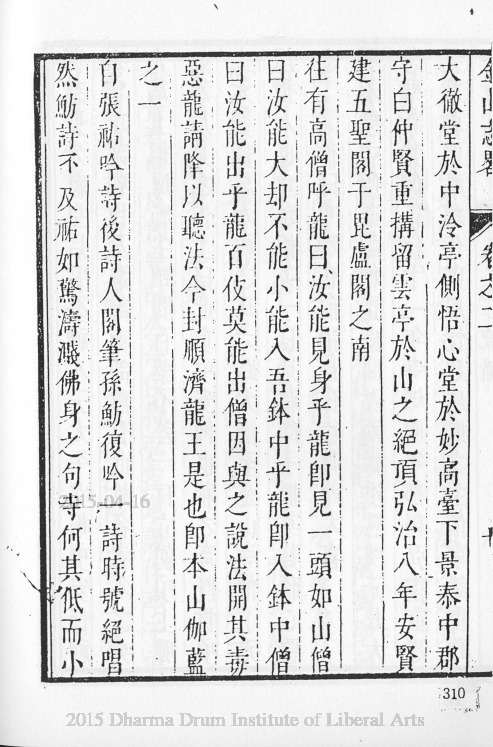 金山志畧 卷之二
大徹堂於中泠亭側悟心堂於妙高臺下景泰中郡
守白仲賢重搆留雲亭於山之絕頂弘治八年安賢
建五聖閣于毘盧閣之南
往有高僧呼龍曰汝能見身乎龍卽見一頭如山僧
曰汝能大却不能小能入吾鉢中乎龍卽入鉢中僧
曰汝能出乎龍百伎莫能出僧因與之說法開其毒
惡龍請降以聽法今封順濟龍王是也卽本山伽藍
之一
自張祐吟詩後詩人閣筆孫魴復吟一詩時號絕唱
然魴詩不及祐如驚濤濺佛身之句寺何其低而小
2015-04-16
310
2015 Dharma Drum Institute of Liberal Arts